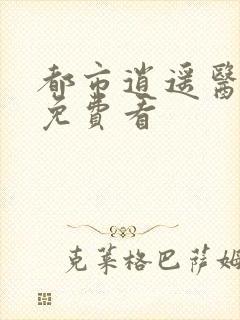 都市逍遥醫
免費看
克萊格巴薩姆